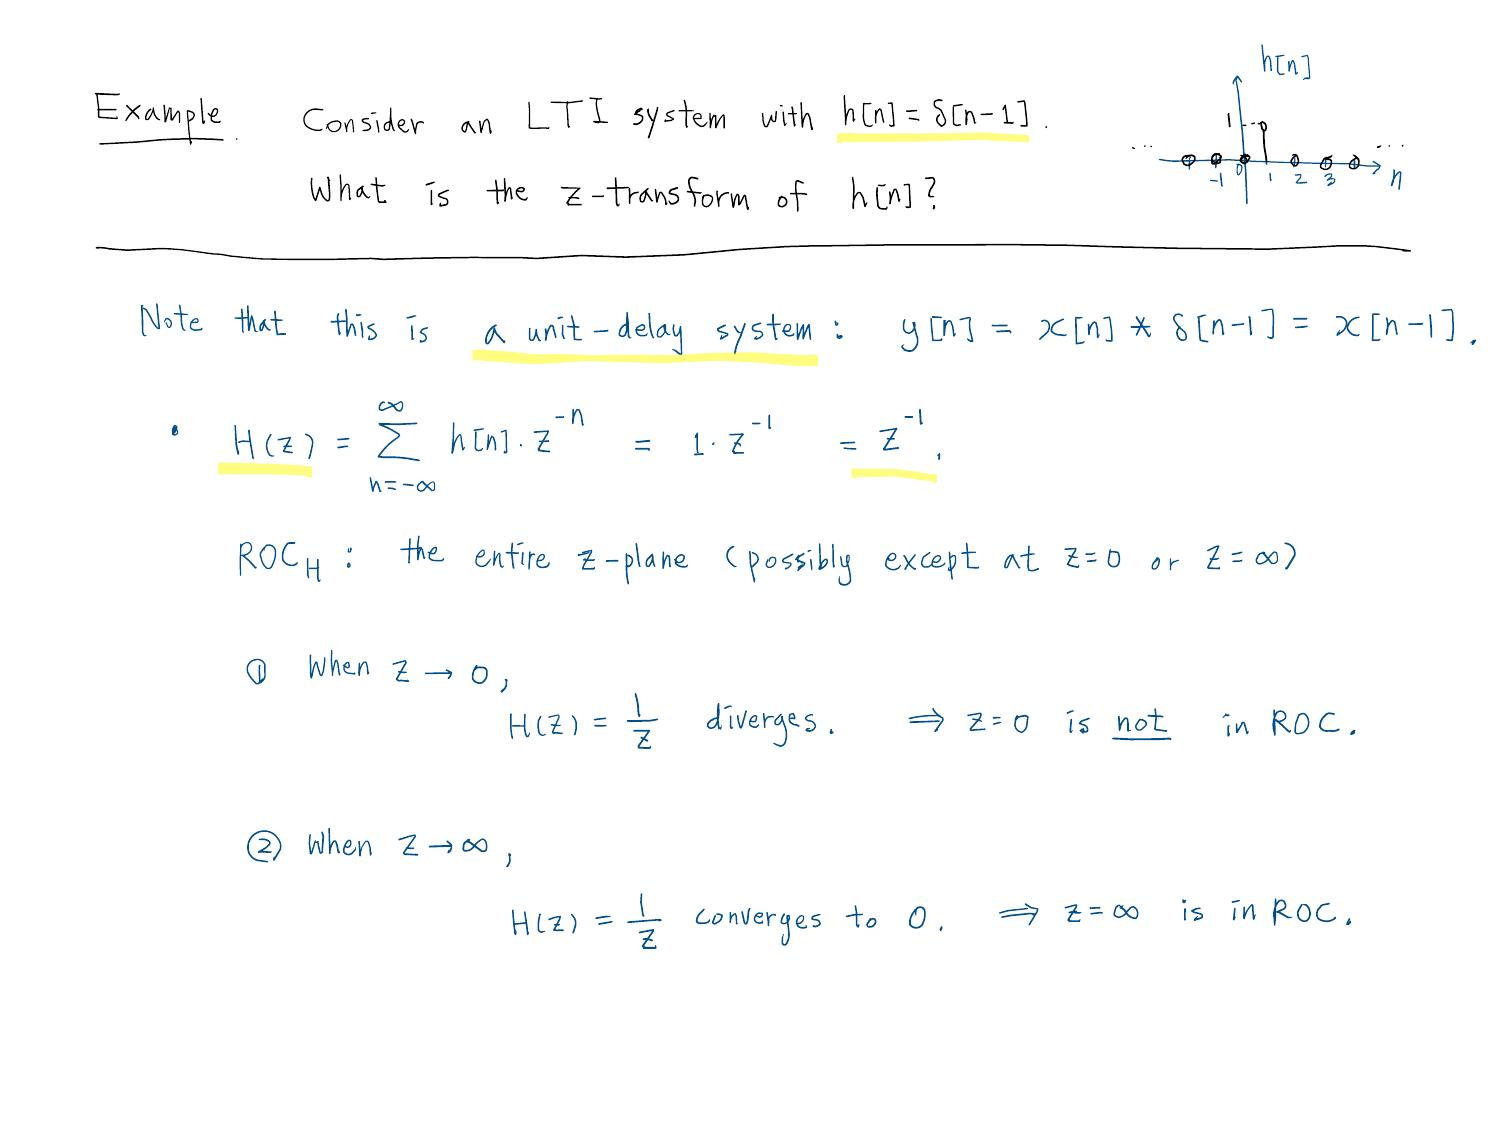 h[n]
Example. Consider an LTI system with h[n] = δ[n-1].
1
... ...
-1 0 1 2 3 n
What is the z-transform of h[n]?
Note that this is a unit-delay system : y[n] = x[n] * δ[n-1] = x[n-1].
• H(z) = ∑_{n=-∞}^{∞} h[n]·z^{-n} = 1·z^{-1} = z^{-1}.
ROC_H : the entire z-plane (possibly except at z=0 or z=∞)
① When z → 0,
H(z) = 1/z diverges. ⇒ z=0 is not in ROC.
② When z → ∞,
H(z) = 1/z converges to 0. ⇒ z=∞ is in ROC.